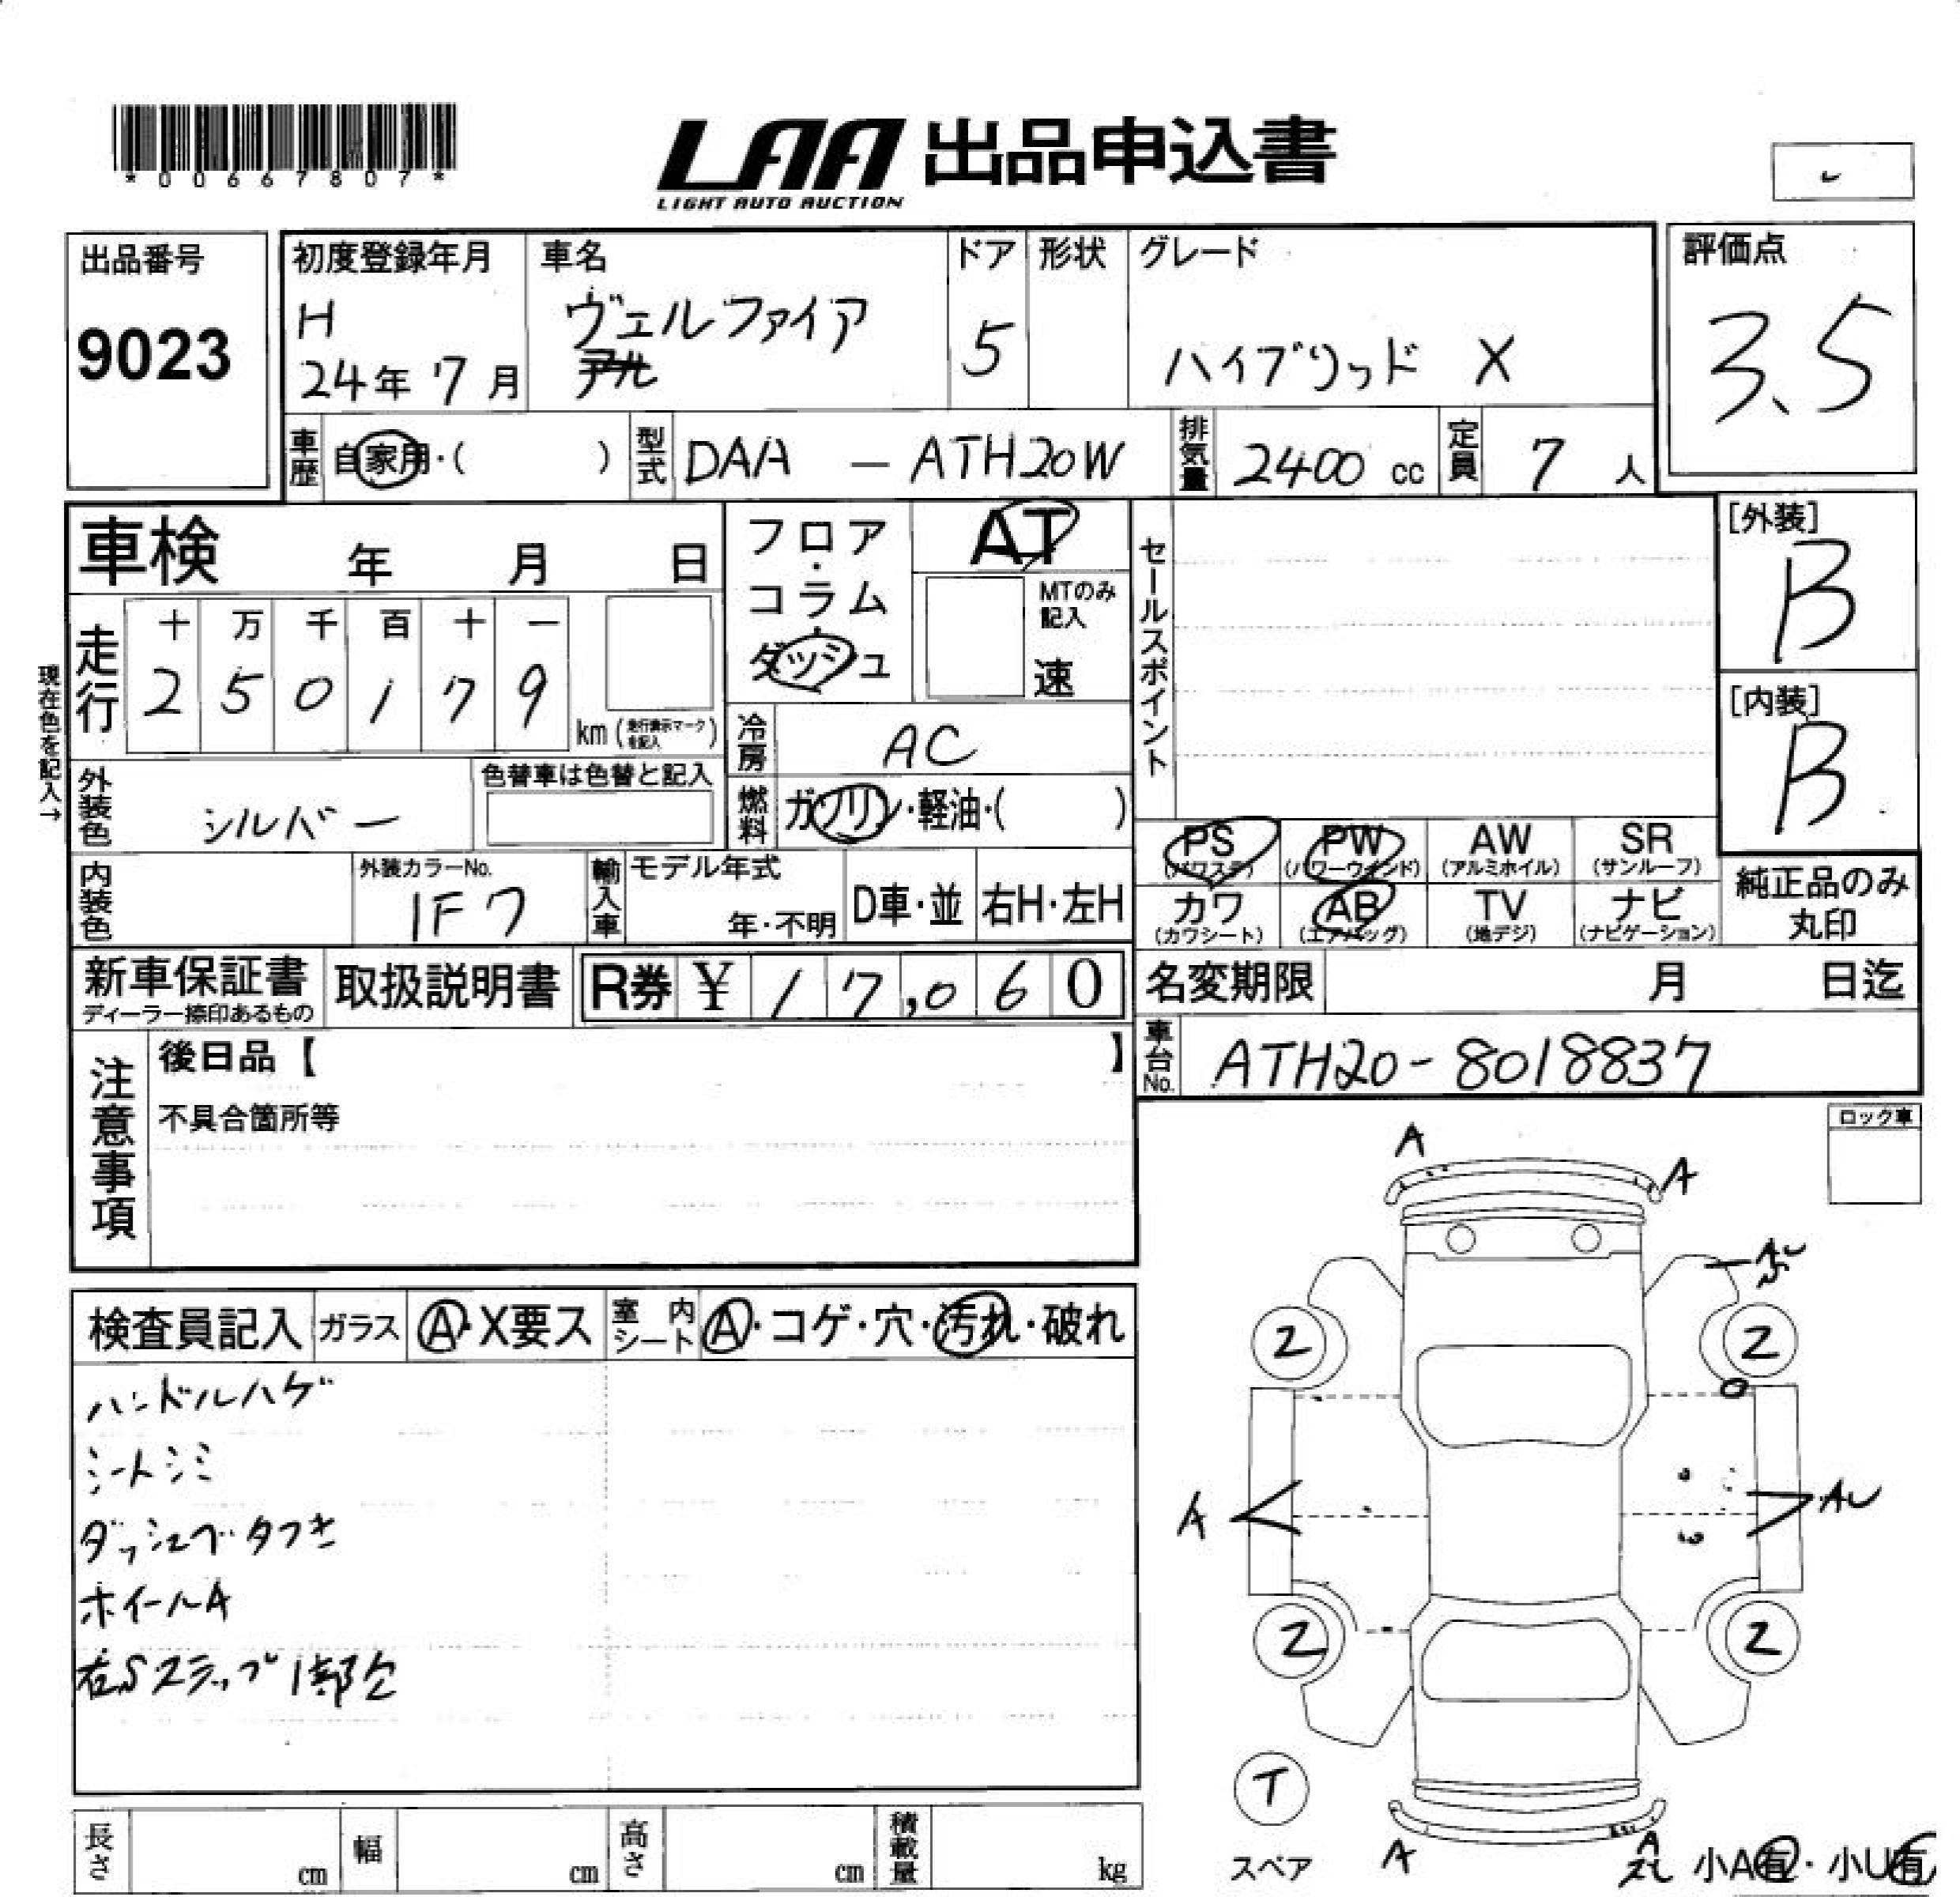 *00667807*
LAA 出品申込書
LIGHT AUTO AUCTION
出品番号
9023
初度登録年月
H
24年 7月
車名
ヴェルファイア
ドア
5
形状
グレード
ハイブリッド X
評価点
3.5
車歴 自家用・( )
型式 DAA - ATH20W
排気量 2400 cc
定員 7 人
車検 年 月 日
フロア・コラム・ダッシュ
AT
MTのみ記入
速
セールスポイント
[外装]
B
[内装]
B
現在色を記入→
走行
十 万 千 百 十 一
2 5 0 1 7 9
km (走行表示マークを記入)
冷房 AC
外装色 シルバー
色替車は色替と記入
燃料 ガソリン・軽油・( )
PS (パワステ)
PW (パワーウインド)
AW (アルミホイル)
SR (サンルーフ)
カワ (カワシート)
AB (エアバッグ)
TV (地デジ)
ナビ (ナビゲーション)
純正品のみ丸印
内装色
外装カラーNo.
1F7
輸入車
モデル年式
年・不明
D車・並
右H・左H
新車保証書
ディーラー捺印あるもの
取扱説明書
R券 ¥ 17,060
名変期限 月 日迄
車台No. ATH20-8018837
注意事項
後日品【 】
不具合箇所等
ロック車
検査員記入
ガラス
A・X要ス
室内シート
A・コゲ・穴・汚れ・破れ
ハンドルハゲ
シートシミ
ダッシュベタつき
ホイールA
右Sステップ1部凸
A
A
2
2
A
AU
2
2
T
スペア
A
A
小A有・小U有
長さ cm
幅 cm
高さ cm
積載量 kg